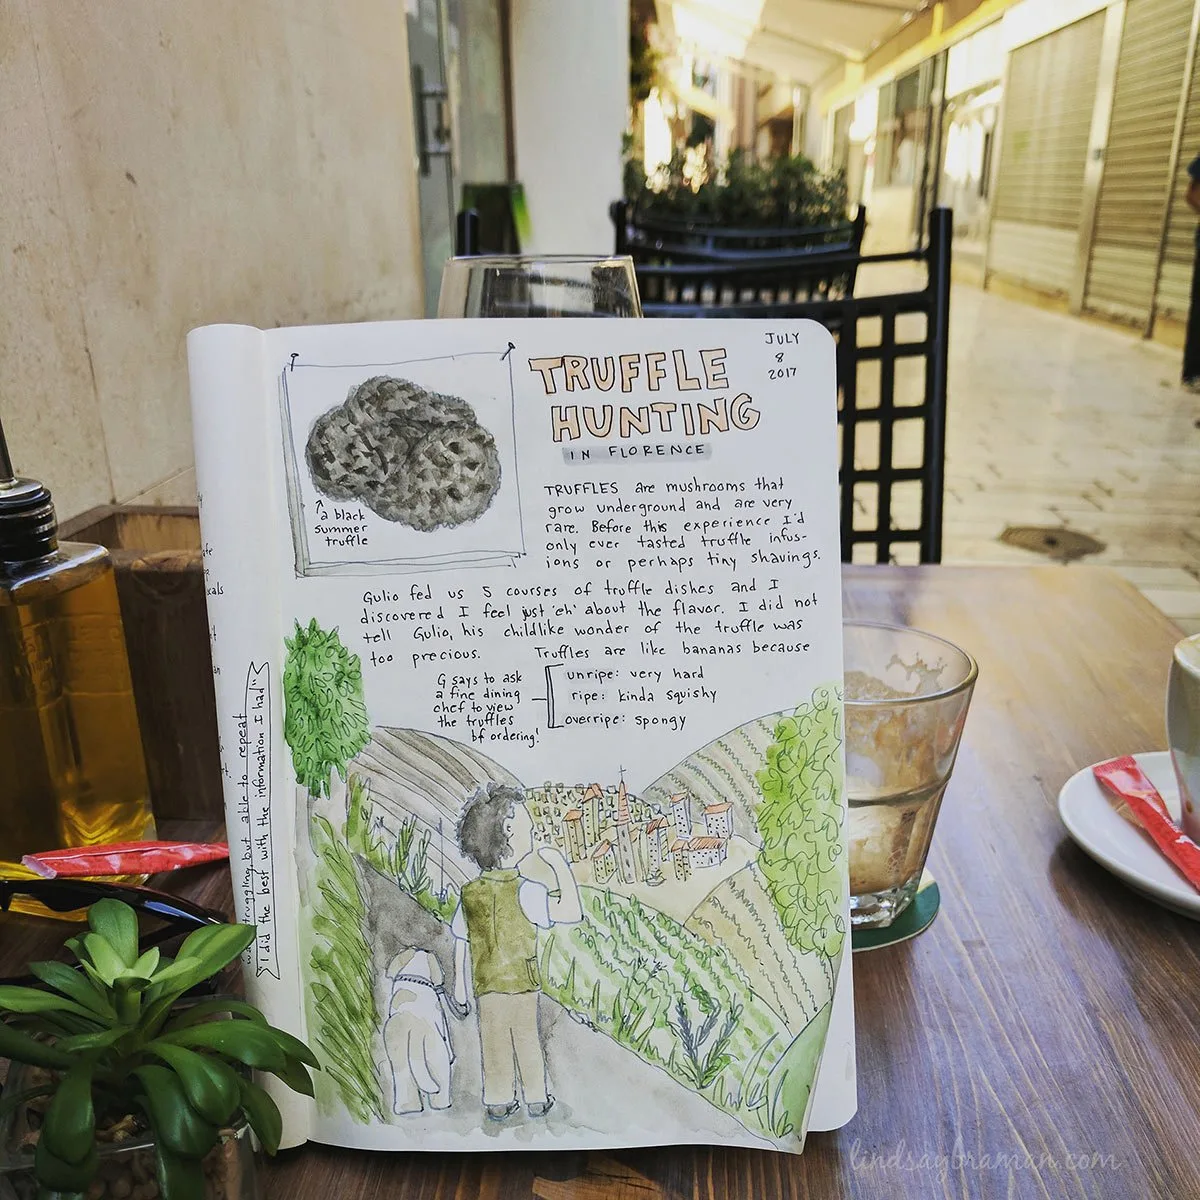 JULY
8
2017
TRUFFLE
HUNTING
IN FLORENCE
a black
summer
truffle
TRUFFLES are mushrooms that
grow underground and are very
rare. Before this experience I'd
only ever tasted truffle infus-
ions or perhaps tiny shavings.
Gulio fed us 5 courses of truffle dishes and I
discovered I feel just 'eh' about the flavor. I did not
tell Gulio, his childlike wonder of the truffle was
too precious. Truffles are like bananas because
G says to ask
a fine dining
chef to view
the truffles
bf ordering!
unripe: very hard
ripe: kinda squishy
overripe: spongy
struggling, but able to repeat
"I did the best with the information I had"
lindsaybraman.com